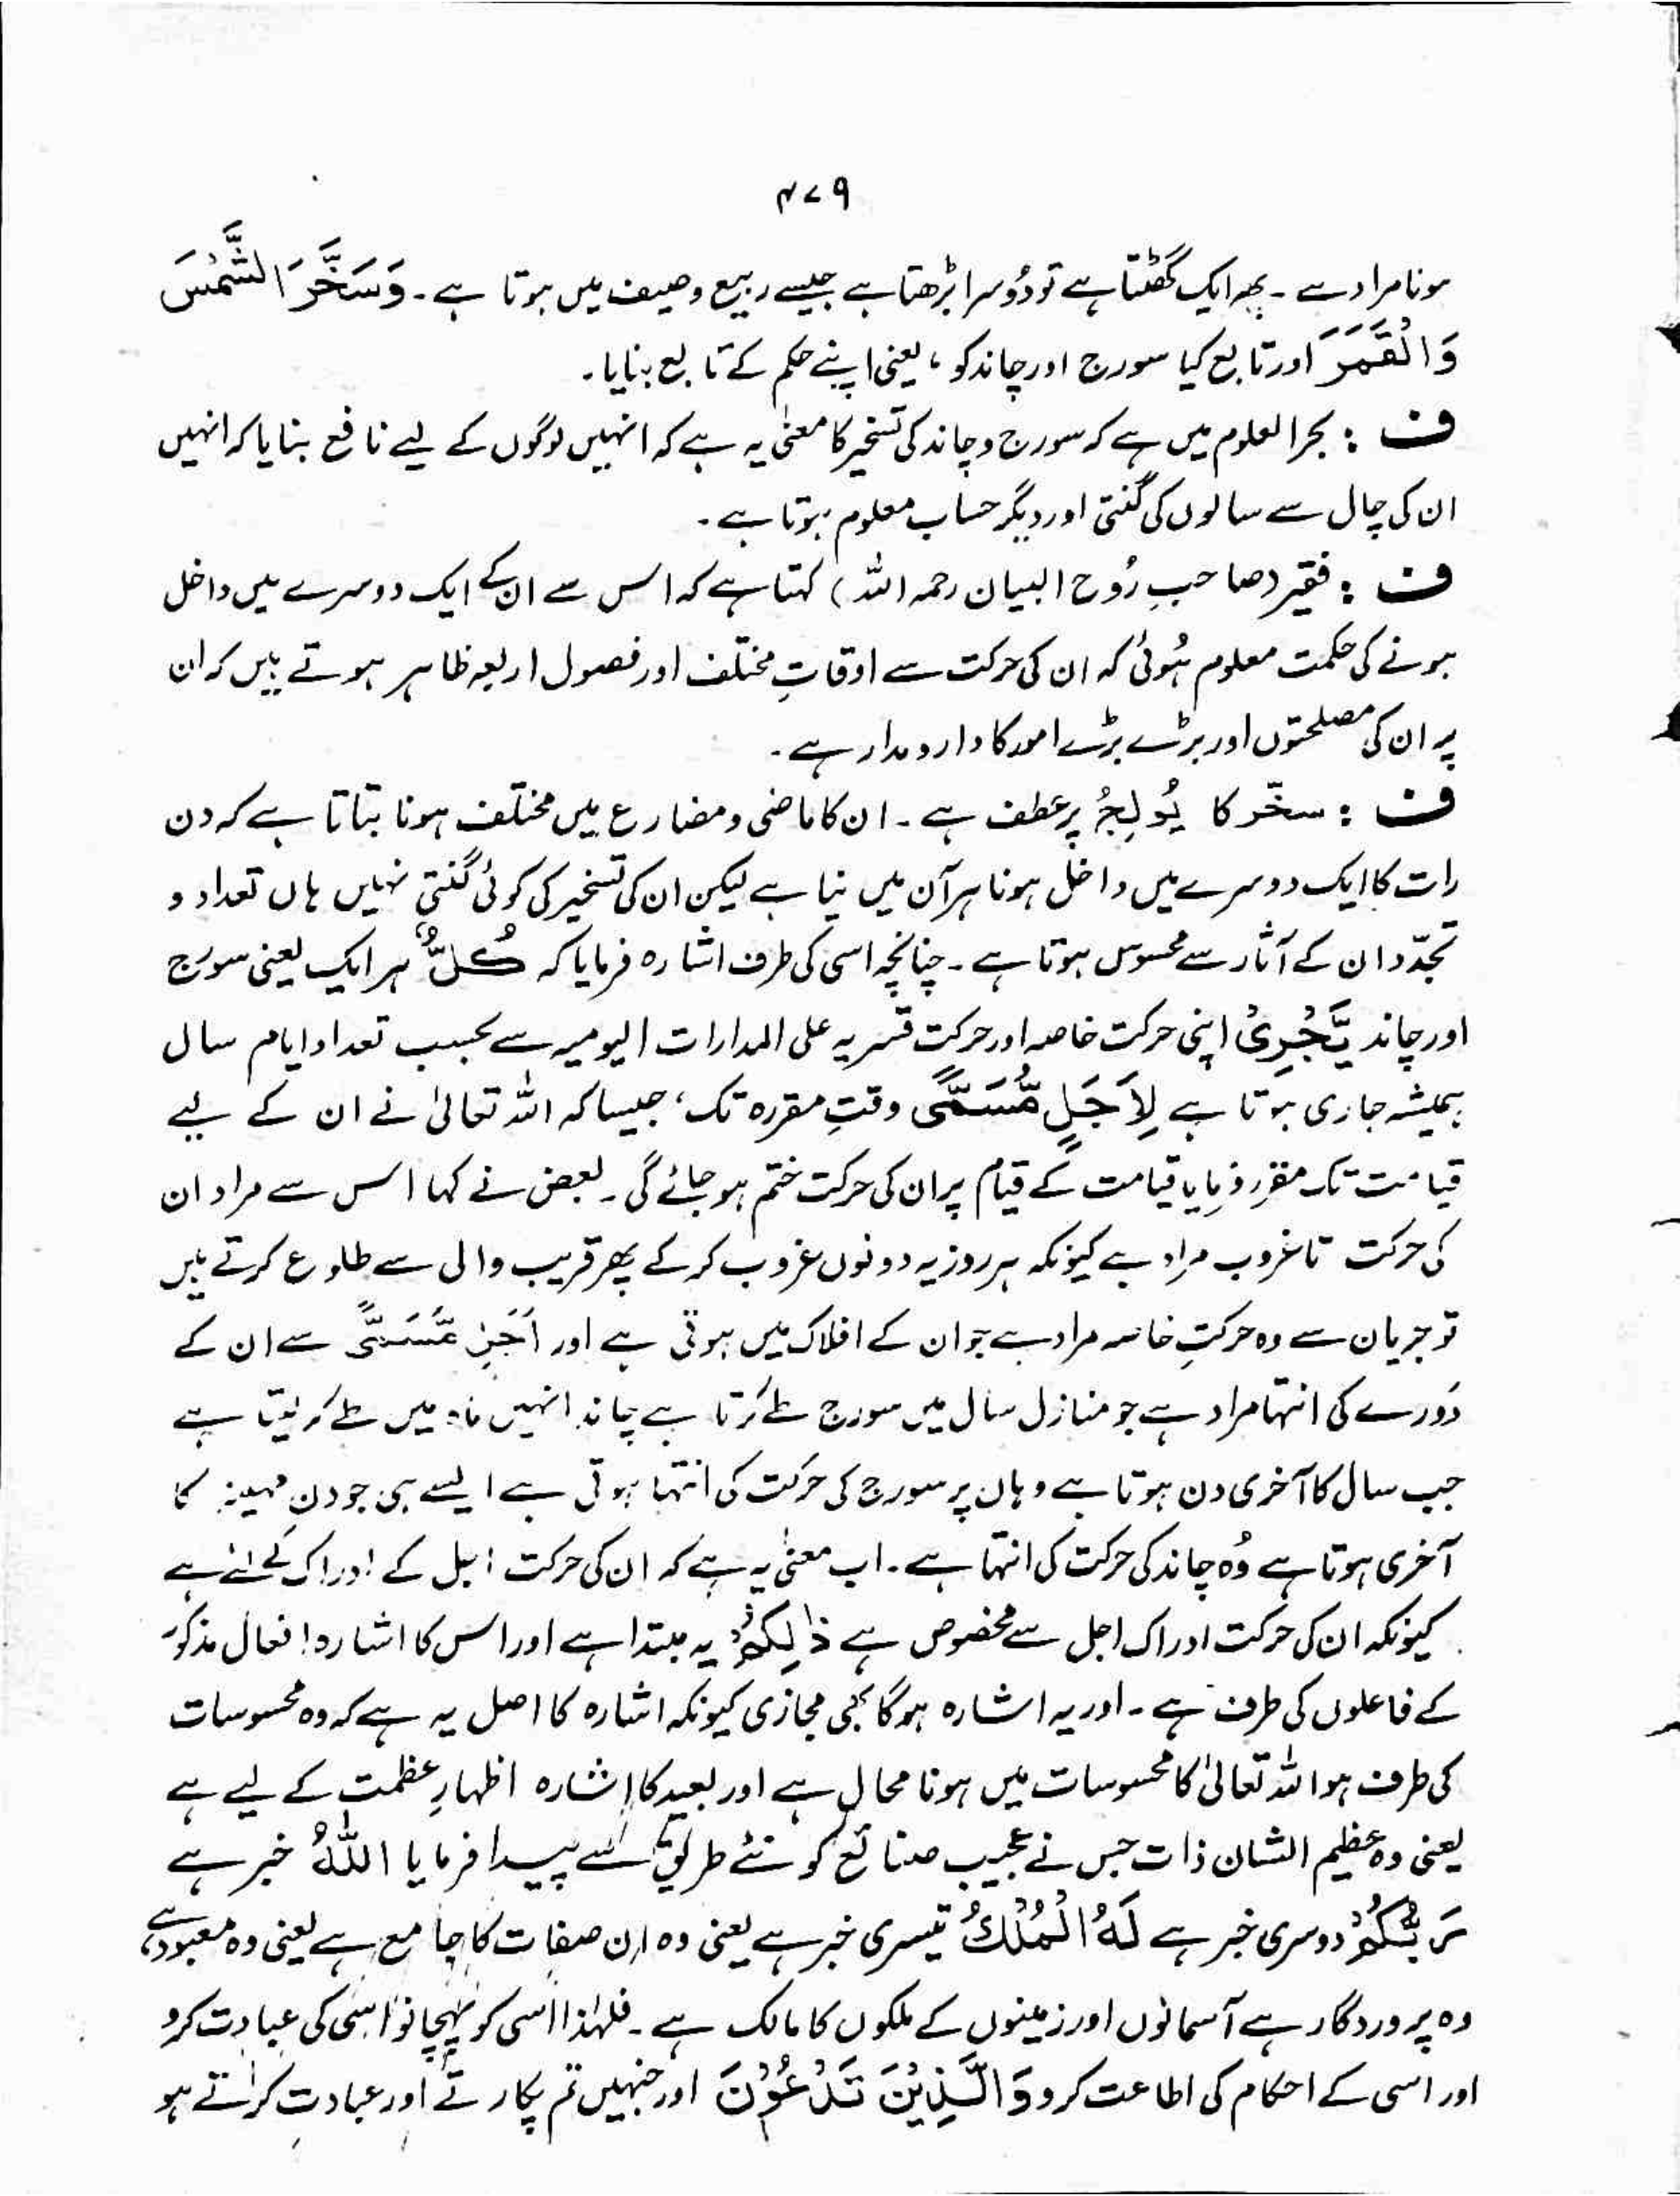 ۴۷۹
ہونا مراد ہے ۔ پھر ایک گھٹتا ہے تو دُوسرا بڑھتا ہے جیسے ربیع وصیف میں ہوتا ہے ۔ وَسَخَّرَ الشَّمْسَ
وَالْقَمَرَ اور تابع کیا سورج اور چاند کو ، یعنی اپنے حکم کے تابع بنایا ۔
ف : بحر العلوم میں ہے کہ سورج و چاند کی تسخیر کا معنیٰ یہ ہے کہ انہیں لوگوں کے لیے نافع بنایا کہ انہیں
ان کی چال سے سالوں کی گنتی اور دیگر حساب معلوم ہوتا ہے ۔
ف : فقیر (صاحبِ رُوح البیان رحمہ اللہ) کہتا ہے کہ اس سے ان کے ایک دوسرے میں داخل
ہونے کی حکمت معلوم ہُوئی کہ ان کی حرکت سے اوقاتِ مختلف اور فصول اربعہ ظاہر ہوتے ہیں کہ ان
پر ان کی مصلحتوں اور بڑے بڑے امور کا دارومدار ہے ۔
ف : سخّر کا یُولِجُ پر عطف ہے ۔ ان کا ماضی و مضارع میں مختلف ہونا بتاتا ہے کہ دن
رات کا ایک دوسرے میں داخل ہونا ہر آن میں نیا ہے لیکن ان کی تسخیر کی کوئی گنتی نہیں ہاں تعداد و
تجدّد ان کے آثار سے محسوس ہوتا ہے ۔ چنانچہ اسی کی طرف اشارہ فرمایا کہ كُلٌّ ہر ایک یعنی سورج
اور چاند يَّجْرِىْ اپنی حرکت خاصہ اور حرکت قسریہ علی المدارات الیومیہ سے بحسب تعداد ایام سال
ہمیشہ جاری ہوتا ہے لِاَجَلٍ مُّسَمًّى وقتِ مقررہ تک ، جیسا کہ اللہ تعالیٰ نے ان کے لیے
قیامت تک مقرر فرمایا قیامت کے قیام پر ان کی حرکت ختم ہو جائے گی ۔ بعض نے کہا اس سے مراد ان
کی حرکت تا غروب مراد ہے کیونکہ ہر روز یہ دونوں غروب کر کے پھر قریب والی سے طلوع کرتے ہیں
تو جریان سے وہ حرکتِ خاصہ مراد ہے جو ان کے افلاک میں ہوتی ہے اور اَجَلٍ مُّسَمًّى سے ان کے
دَورے کی انتہا مراد ہے جو منازل سال میں سورج طے کرتا ہے چاند انہیں ماہ میں طے کر لیتا ہے
جب سال کا آخری دن ہوتا ہے وہاں پر سورج کی حرکت کی انتہا ہوتی ہے ایسے ہی جو دن مہینہ کا
آخری ہوتا ہے وُہ چاند کی حرکت کی انتہا ہے ۔ اب معنیٰ یہ ہے کہ ان کی حرکت اجل کے ادراک کے لئے ہے
کیونکہ ان کی حرکت ادراک اجل سے مخصوص ہے ذٰلِكُمُ یہ مبتدا ہے اور اس کا اشارہ افعال مذکورہ
کے فاعلوں کی طرف ہے ۔ اور یہ اشارہ ہوگا بھی مجازی کیونکہ اشارہ کا اصل یہ ہے کہ وہ محسوسات
کی طرف ہو اللہ تعالیٰ کا محسوسات میں ہونا محال ہے اور بعید کا اشارہ اظہارِ عظمت کے لیے ہے
یعنی وہ عظیم الشان ذات جس نے عجیب صنائع کو نئے طریق سے پیدا فرمایا اللّٰهُ خبر ہے
رَبُّكُمْ دوسری خبر ہے لَهُ الْمُلْكُ تیسری خبر ہے یعنی وہ ان صفات کا جامع ہے یعنی وہ معبود ہے ،
وہ پروردگار ہے آسمانوں اور زمینوں کے ملکوں کا مالک ہے ۔ فلہٰذا اسی کو پہچانو اسی کی عبادت کرو
اور اسی کے احکام کی اطاعت کرو وَالَّذِيْنَ تَدْعُوْنَ اور جنہیں تم پکارتے اور عبادت کراتے ہو